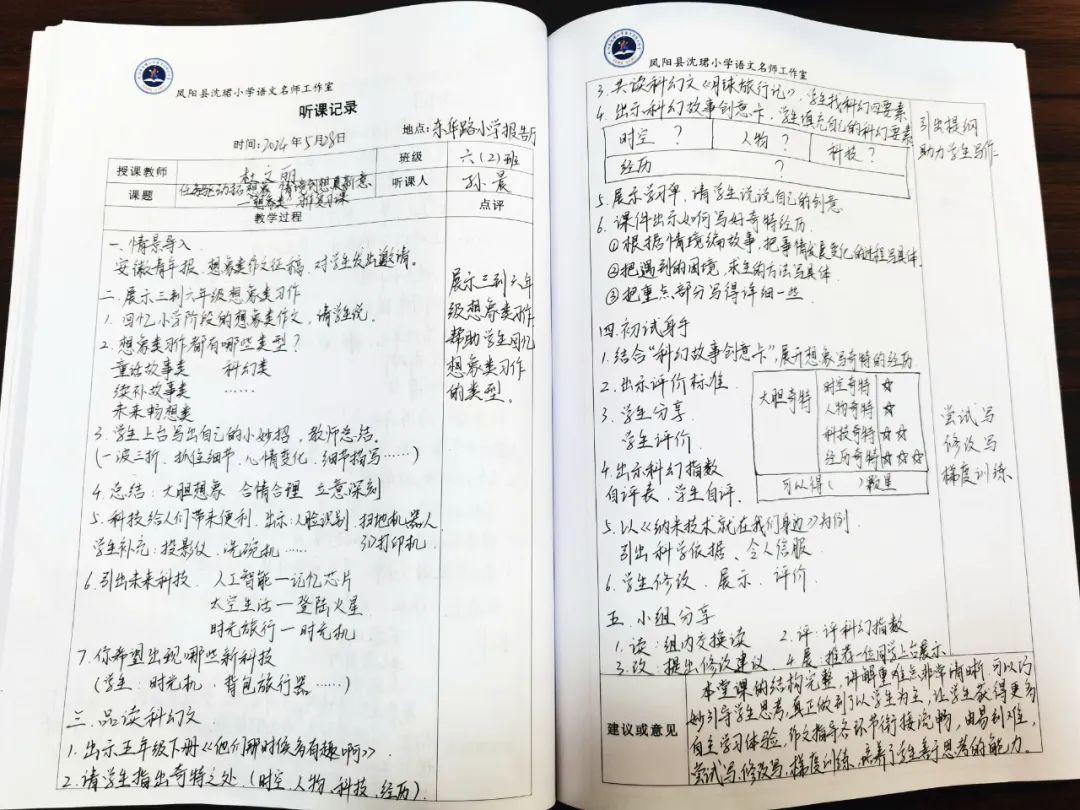 凤阳县沈珺小学语文名师工作室
听课记录
时间:2024年5月28日 地点:东华路小学报告厅
授课教师 杜文丽 班级 六(2)班
课题 任务驱动拓想象 情境创想真新意
—想象类习作复习课
听课人 孙晨
教学过程 点评
一.情景导入
安徽青年报.想象类作文征稿.对学生发出邀请。
二.展示三到六年级想象类习作
1.回忆小学阶段的想象类作文,请学生说.
2.想象类习作都有哪些类型?
童话故事类 科幻类
续补故事类 ……
未来畅想类
3.学生上台写出自己的小妙招,教师总结。
(一波三折.抓住细节.心情变化.细节描写……)
4.总结:大胆想象 合情合理 立意深刻
5.科技给人们带来便利.出示:人脸识别.扫地机器人
学生补充:投影仪.洗碗机…… 3D打印机.
6.引出未来科技. 人工智能—记忆芯片
太空生活—登陆火星
时光旅行—时光机
7.你希望出现哪些新科技
(学生:时光机.背包旅行器……)
三.品读科幻文
1.出示五年级下册《他们那时候多有趣啊》.
2.请学生指出奇特之处.(时空.人物.科技.经历).
展示三到六年
级想象类习作
帮助学生回忆
想象类习作
的类型。
凤阳县沈珺小学语文名师工作室
3.共读科幻文《月球旅行记》,学生找科幻四要素
4.出示科幻故事创意卡,学生填充自己的科幻要素
时空 ? 人物 ? 科技 ?
经历 ?
引出提纲
助力学生写作
5.展示学习单,请学生说说自己的创意
6.课件出示如何写好奇特经历.
①根据情境编故事,把事情发展变化的过程写具体.
②把遇到的困境,求生的方法写具体
③把重点部分写得详细一些.
四.初试身手
1.结合“科幻故事创意卡”,展开想象写奇特的经历.
2.出示评价标准.
3.学生分享.
学生评价.
4.出示科幻指数
自评表,学生自评.
大胆奇特 时空奇特 ☆
人物奇特 ☆
科技奇特 ☆☆
经历奇特 ☆☆☆
可以得( )颗星
尝试写
修改写
梯度训练
5.以《纳米技术就在我们身边》为例
引出科学依据、令人信服.
6.学生修改.展示.评价.
五.小组分享
1.读:组内交换读 2.评:评科幻指数
3.改:提出修改建议. 4.展:推荐一位同学上台展示
建议或意见
本堂课的结构完整,讲解重难点非常清晰.可以巧
妙引导学生思考,真正做到了以学生为主,让学生获得更多
自主学习体验.作文指导各环节衔接流畅,由易到难,
尝试写.修改写.梯度训练,培养了学生善于思考的能力.